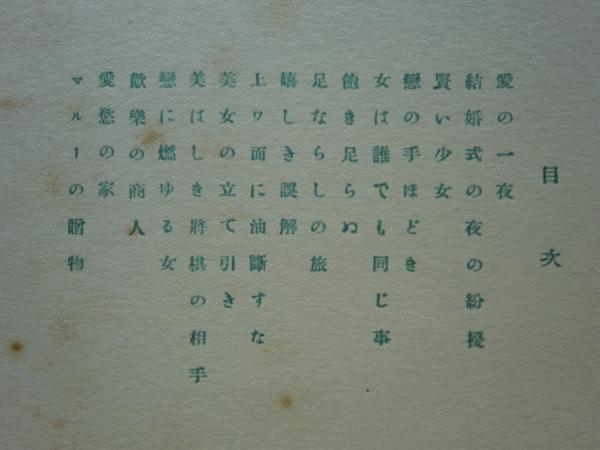 目次
愛の一夜
結婚式の夜の紛擾
賢い少女
戀の手ほどき
女は誰でも同じ事
飽き足らぬ
足ならしの旅
嬉しき誤解
上ワ面に油斷すな
美女の立て引き
美はしき將棋の相手
戀に燃ゆる女
歡樂の商人
愛慾の家
マルーの贈物